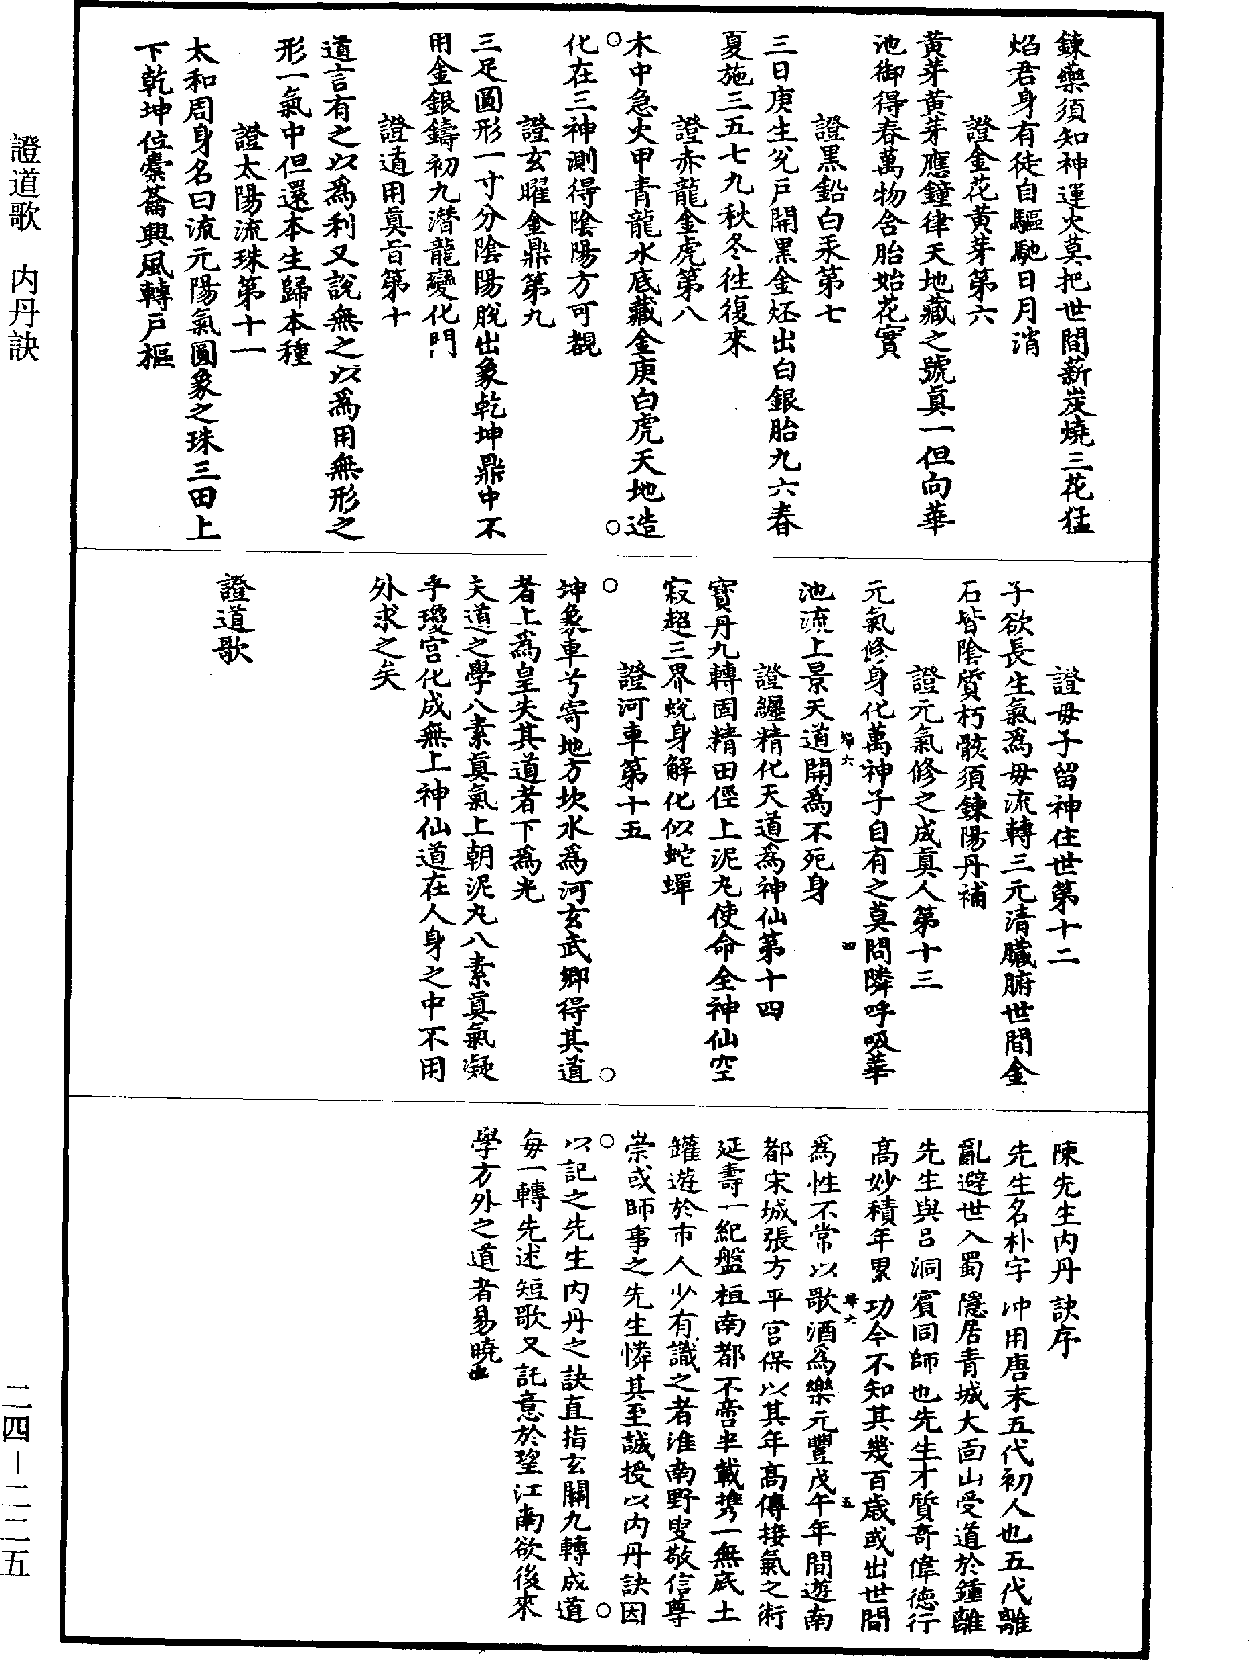 鍊藥須知神運火莫把世間薪炭燒三花猛
焰君身有徒自驅馳日月消
證金花黃芽第六
黃芽黃芽應鐘律天地藏之號真一但向華
池御得春萬物含胎始花實
證黑鉛白汞第七
三日庚生兌戶開黑金烓出白銀胎九六春
夏施三五七九秋冬往復來
證赤龍金虎第八
木中急火甲青龍水底藏金庚白虎天地造
化在三神測得陰陽方可覩
證玄曜金鼎第九
三足圓形一寸分陰陽脫出象乾坤鼎中不
用金銀鑄初九潛龍變化門
證道用真旨第十
道言有之以為利又說無之以為用無形之
形一氣中但還本生歸本種
證太陽流珠第十一
太和周身名曰流元陽氣圓象之珠三田上
下乾坤位橐籥興風轉戶樞
證母子留神住世第十二
子欲長生氣為母流轉三元清臟腑世間金
石皆陰質朽骸須鍊陽丹補
證元氣修之成真人第十三
元氣修身化萬神子自有之莫問隣呼吸華
池流上景天道開為不死身
證纏精化天道為神仙第十四
寶丹九轉固精田徑上泥丸使命全神仙空
寂超三界蛻身解化似蛇蟬
證河車第十五
坤象車兮寄地方坎水為河玄武鄉得其道
者上為皇失其道者下為光
夫道之學八素真氣上朝泥丸八素真氣凝
乎瓊宮化成無上神仙道在人身之中不用
外求之矣
證道歌
陳先生內丹訣序
先生名朴字冲用唐末五代初人也五代離
亂避世入蜀隱居青城大面山受道於鍾離
先生與呂洞賓同師也先生才質奇偉德行
高妙積年累功今不知其幾百歲或出世間
為性不常以歌酒為樂元豐戊午年間遊南
都宋城張方平宮保以其年高傳接氣之術
延壽一紀盤桓南都不啻半載携一無底土
罐遊於市人少有識之者淮南野叟敬信尊
崇或師事之先生憐其至誠授以內丹訣因
以記之先生內丹之訣直指玄關九轉成道
每一轉先述短歌又託意於望江南欲後來
學方外之道者易曉
證道歌　內丹訣
二四－二二五